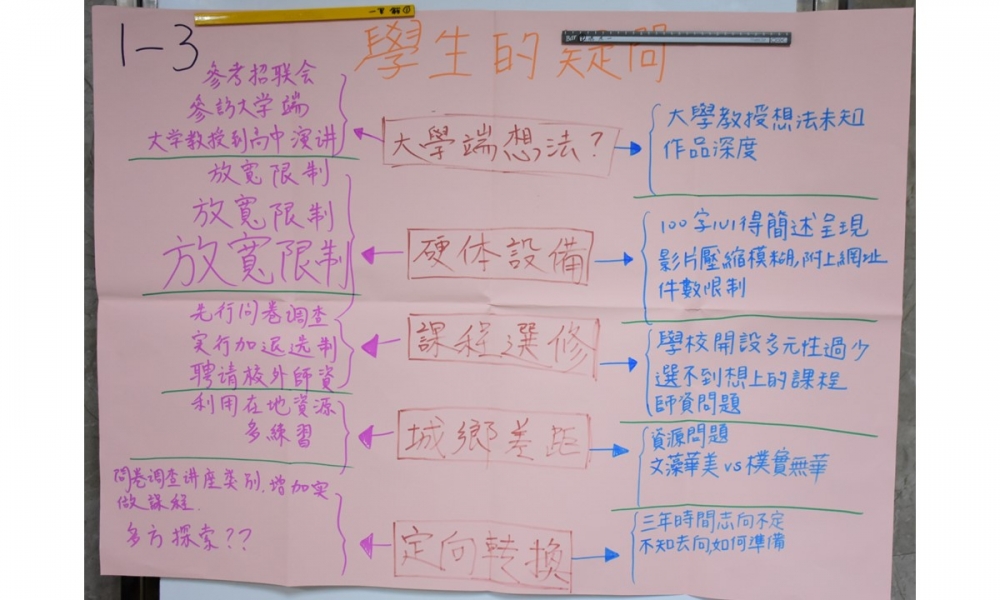 1-3
學生的疑問
參考招联会
參訪大学端
大学教授到高中演讲
大學端想法?
大學教授想法未知
作品深度
放寬限制
放寬限制
放寬限制
硬体設備
100字心得簡述呈現
影片壓縮模糊,附上網址
件數限制
先行问卷调查
实行加退选制
聘请校外師資
課程選修
學校開設多元性過少
選不到想上的課程
師資問題
利用在地資源
多練習
城鄉差距
資源問題
文藻華美 vs 樸實無華
問卷调查讲座类别,增加实
做課程.
多方探索??
定向轉換
三年時間志向不定
不知去向,如何準備